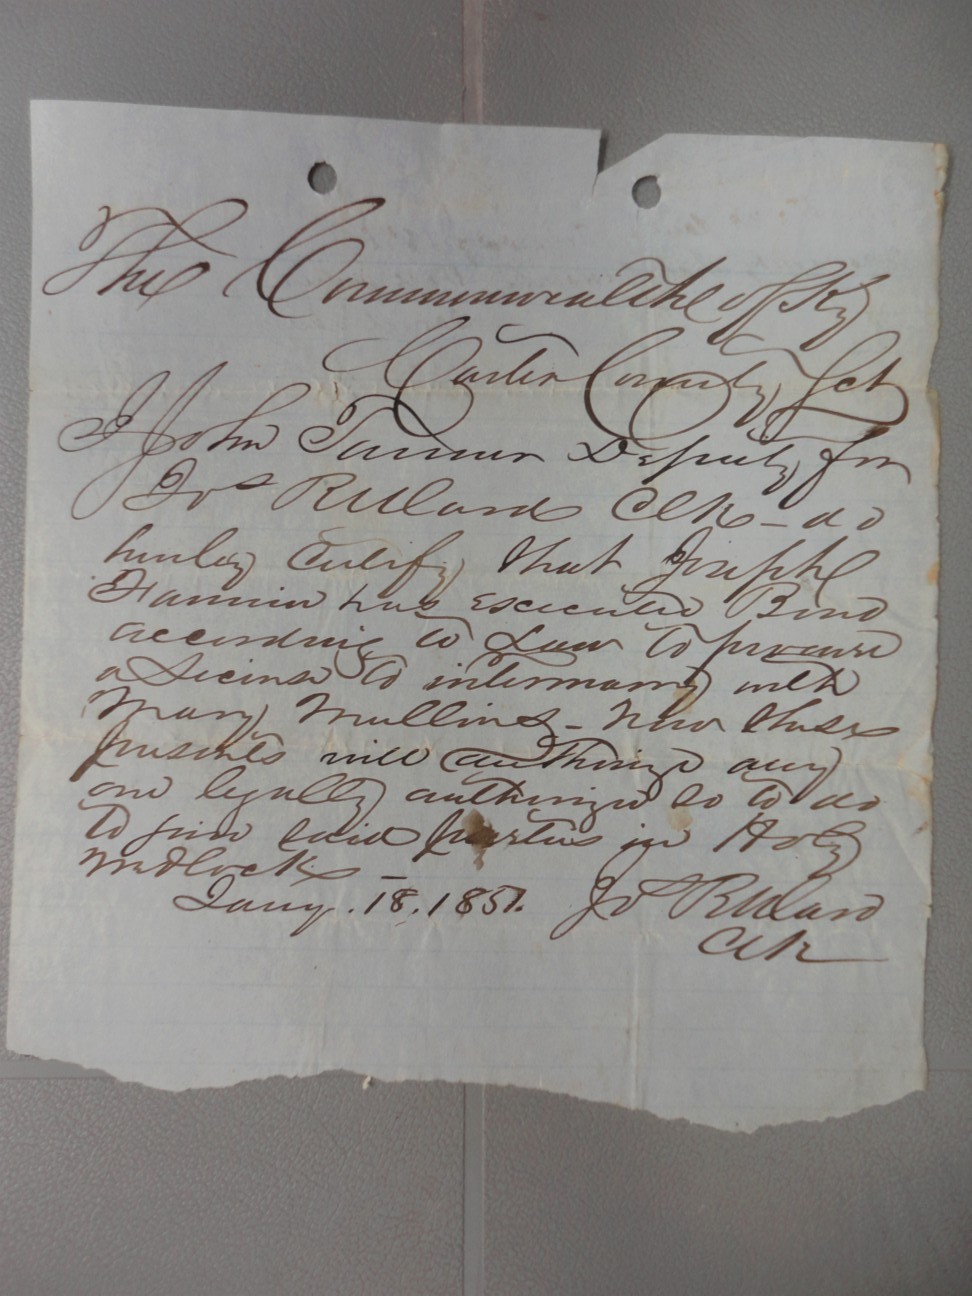 The Commonwealthe of Ky
Carter County Sct
I John Tanner Deputy for
Jos R Ward Clk - do
hereby Certify that Joseph
Hannin has executed Bond
according to Law to procure
a License to intermarry with
Mary Mullins - Now these
presents will authorize any
one legally authorized so to do
to join said parties in Holy
Wedlock
Jany. 18. 1851. Jos R Ward
Clk